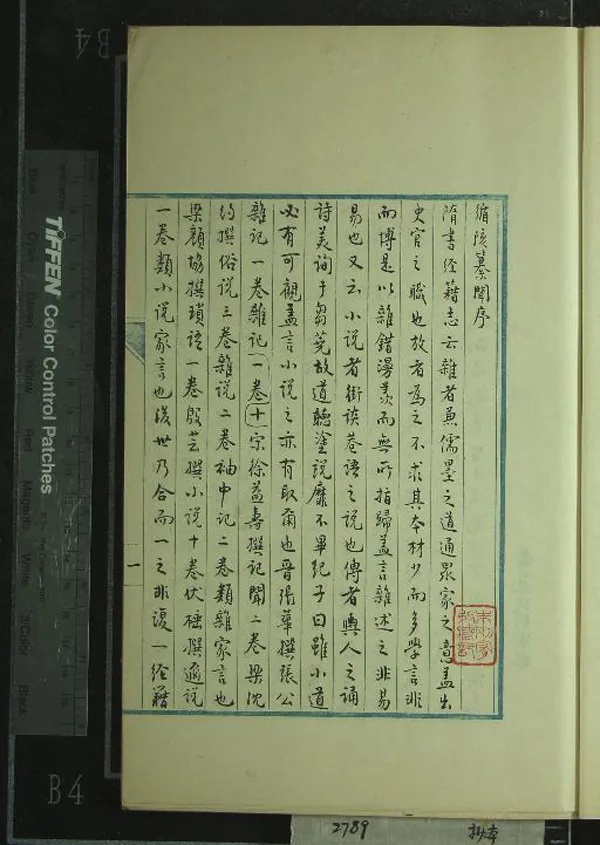 循陔纂聞序
隋書经籍志云雜者兼儒墨之道通眾家之意盖出
史官之職也放者為之不求其本材少而多學言非
而博是以雜錯漫羨而無所指歸盖言雜述之非易
易也又云小说者街谈巷语之说也傳者輿人之誦
詩美询于芻荛故道聽塗说靡不畢紀子曰雖小道
必有可觀盖言小说之亦有取爾也晋張華撰張公
雜记一卷雜记一卷十宗徐益壽撰記聞二卷梁沈
约撰俗说三卷雜说二卷袖中记二卷類雜家言也
梁顏協撰瑣语一卷殷芸撰小说十卷伏挺撰邇说
一卷類小说家言也後世乃合而一之非復一经籍
一
TIFFEN Color Control Patches
B4
B4
2789
抄本